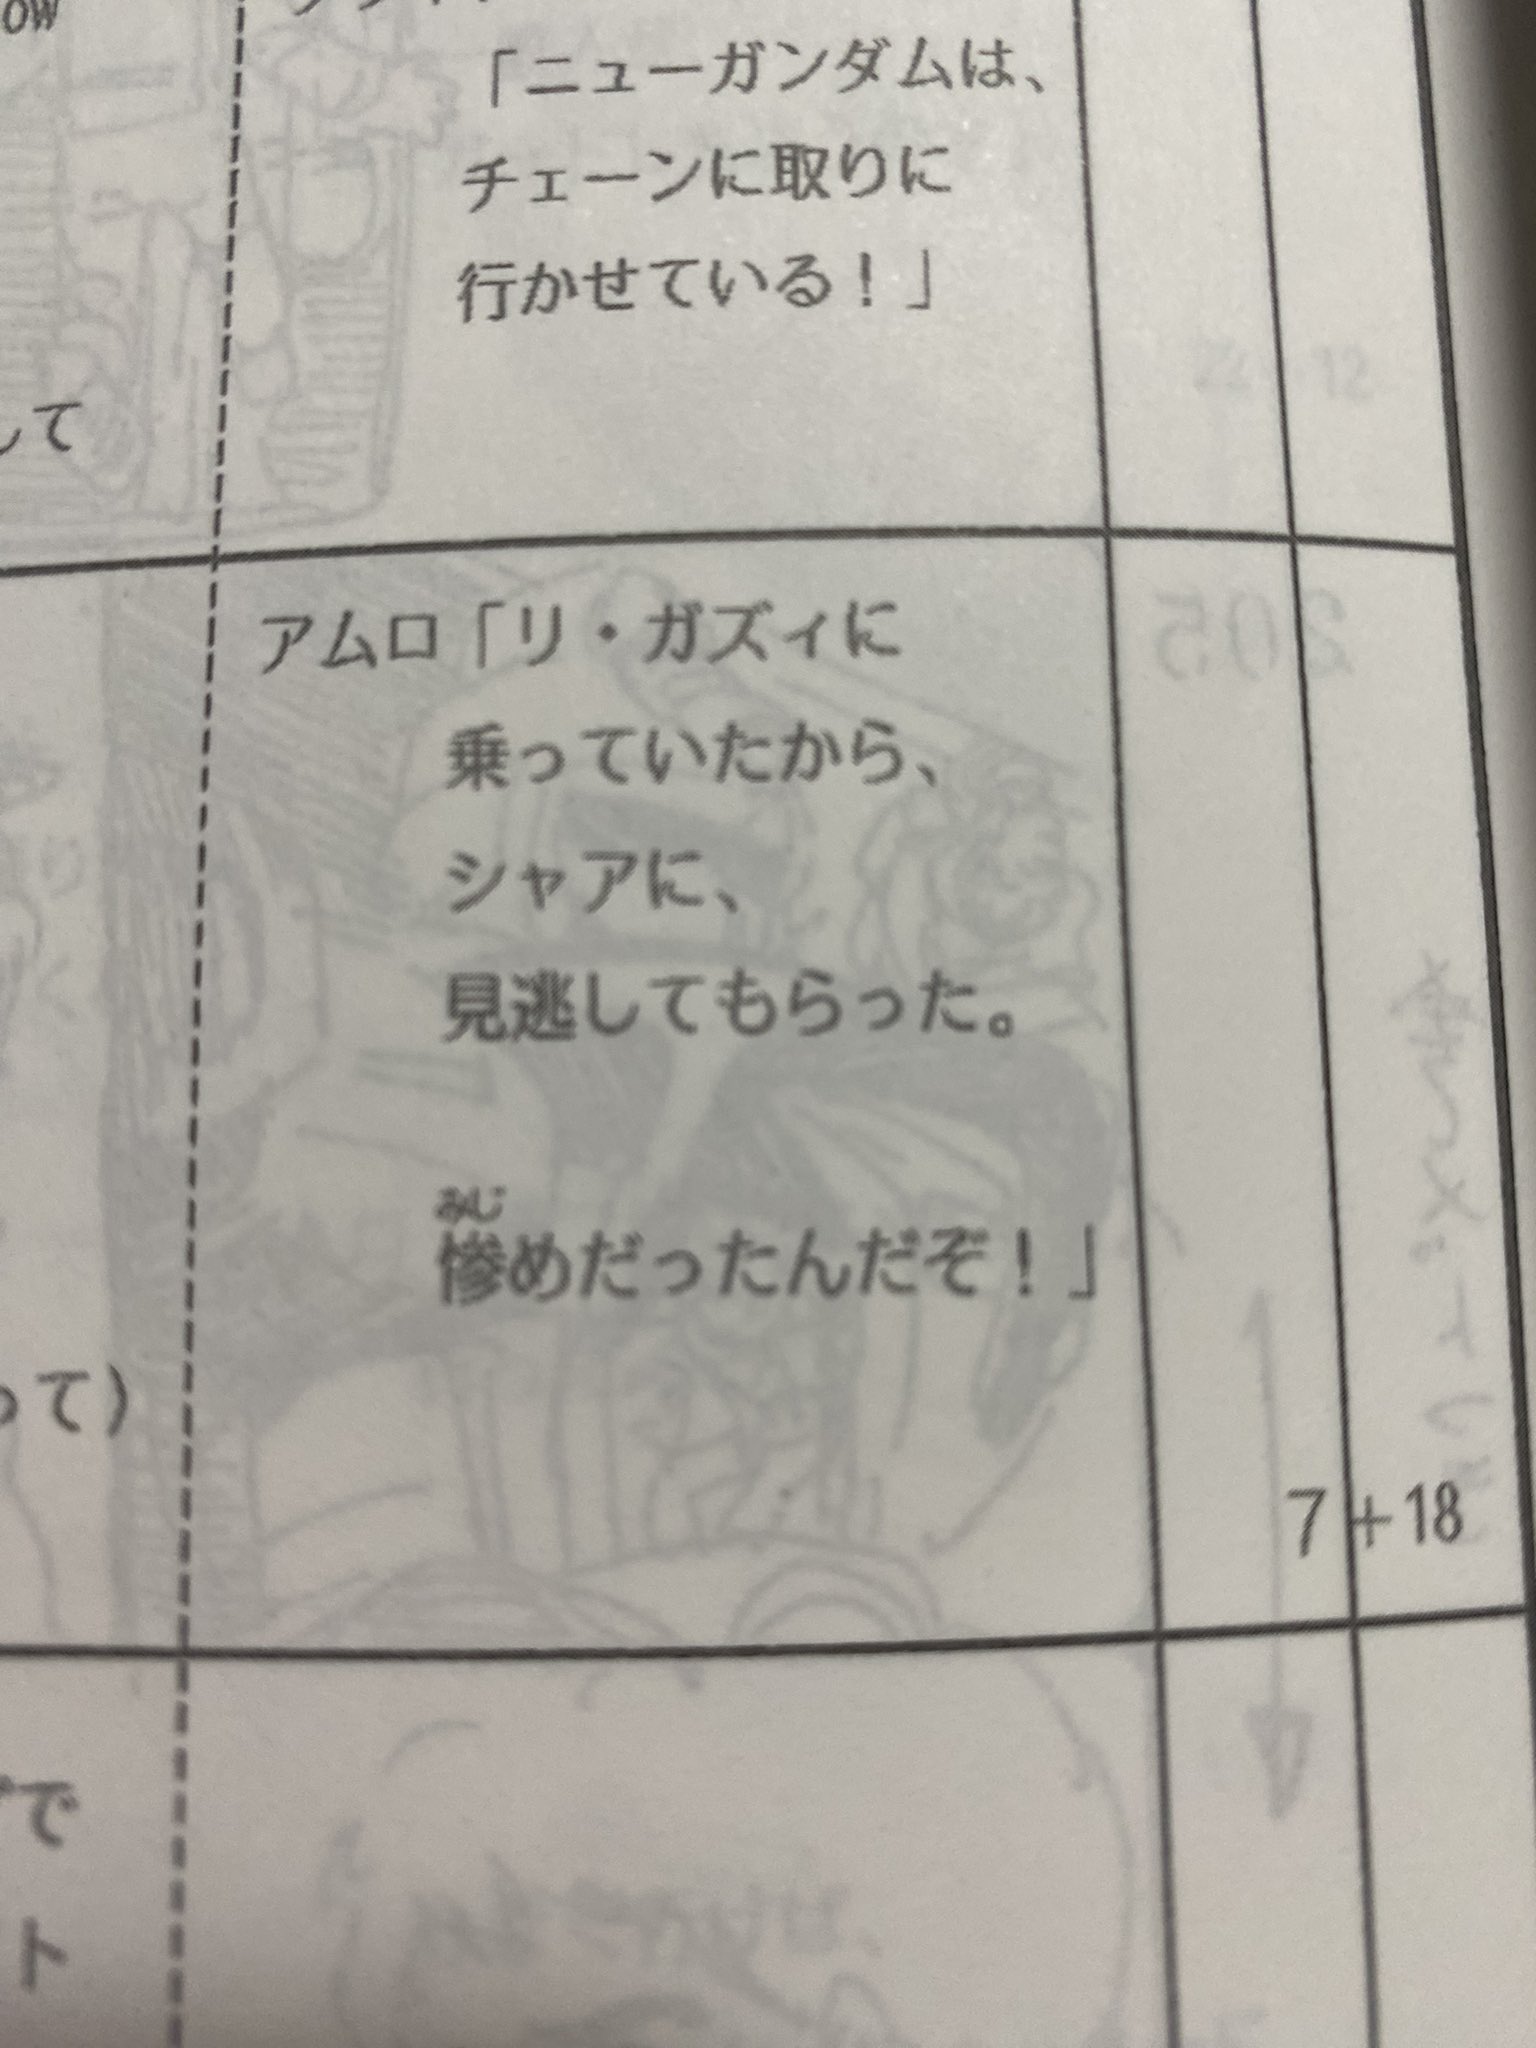 「ニューガンダムは、
チェーンに取りに
行かせている！」
して
アムロ「リ・ガズィに
乗っていたから、
シャアに、
見逃してもらった。
みじ
惨めだったんだぞ！」
って）
7+18
で
ト